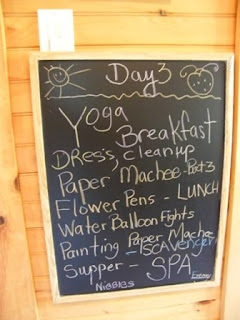 Day 3
Yoga
Breakfast
Dress, cleanup
Paper Machee - Part 3
Flower Pens - LUNCH
Water Balloon Fights
Painting Paper Mache
- SCAVENGER
Supper - SPA
Nibbles